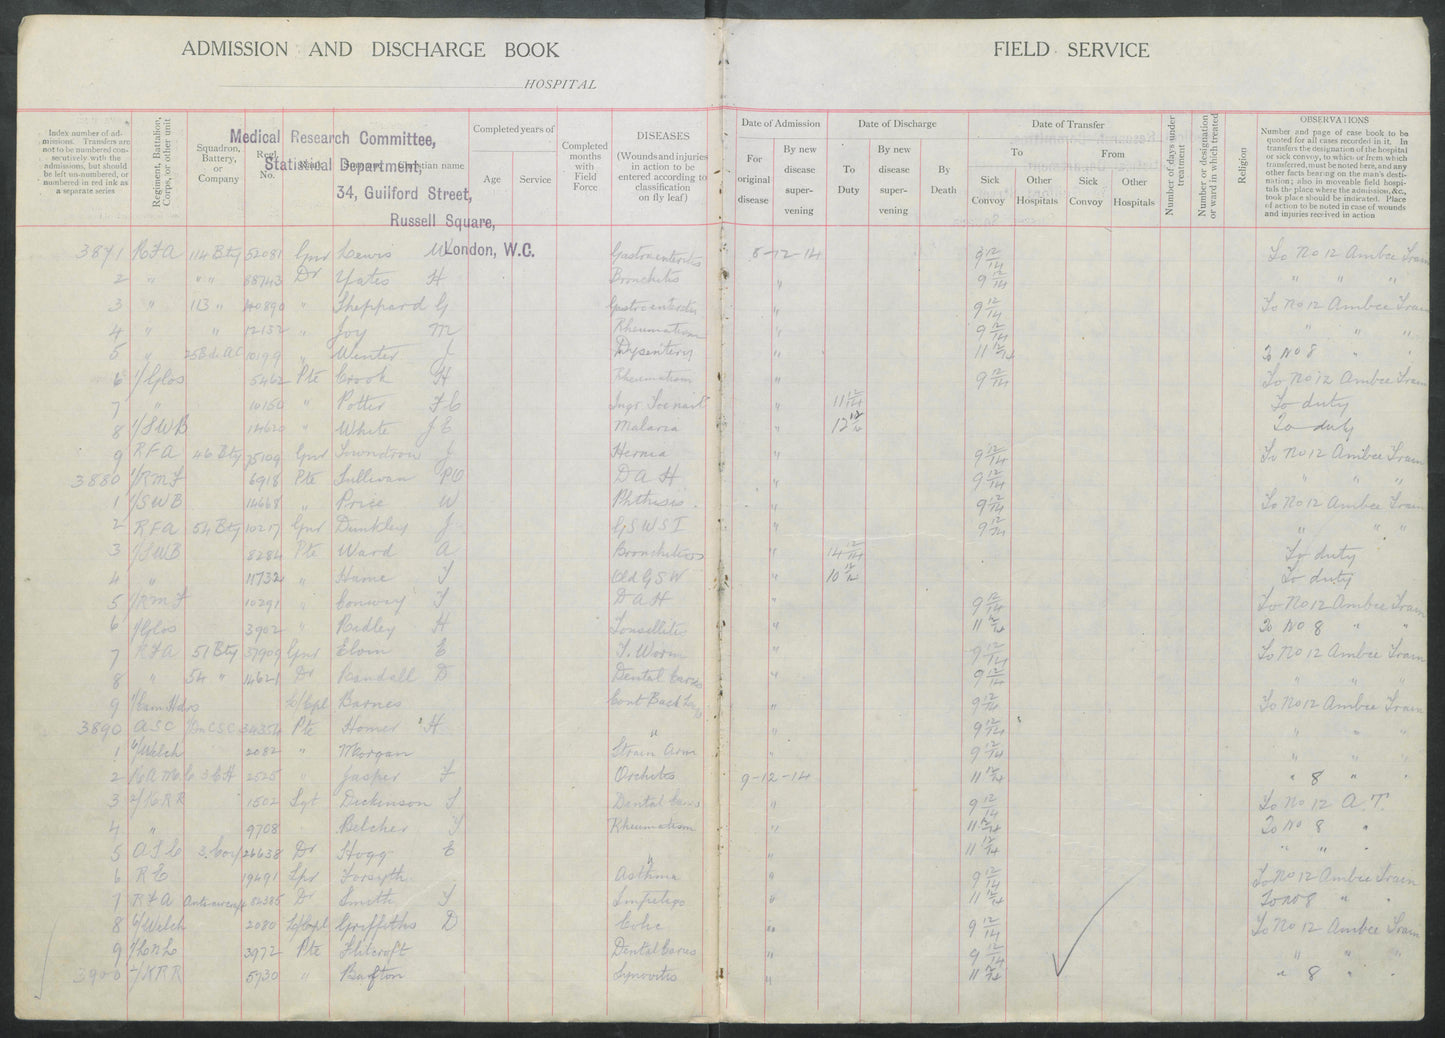 ADMISSION AND DISCHARGE BOOK
HOSPITAL
FIELD SERVICE
Index number of ad-
missions. Transfers are
not to be numbered con-
secutively with the
admissions, but should
be left un-numbered, or
numbered in red ink as
a separate series
Regiment, Battalion,
Corps, or other unit
Squadron,
Battery,
or
Company
Regl.
No.
Christian name
Medical Research Committee,
Statistical Department,
34, Guilford Street,
Russell Square,
London, W.C.
Completed years of
Age
Service
Completed
months
with
Field
Force
DISEASES
(Wounds and injuries
in action to be
entered according to
classification
on fly leaf)
Date of Admission
For
original
disease
By new
disease
super-
vening
Date of Discharge
To
Duty
By new
disease
super-
vening
By
Death
Date of Transfer
To
From
Sick
Convoy
Other
Hospitals
Sick
Convoy
Other
Hospitals
Number of days under
treatment
Number or designation
or ward in which treated
Religion
OBSERVATIONS
Number and page of case book to be
quoted for all cases recorded in it. In
transfers the designation of the hospital
or sick convoy, to which or from which
transferred, must be noted here, and any
other facts bearing on the man's desti-
nation; also in moveable field hospi-
tals the place where the admission, &c.,
took place should be indicated. Place
of action to be noted in case of wounds
and injuries received in action
3871 RFA 114 Bty 52081 Gnr Lewis W Gastroenteritis 8-12-14 9 12/14 To No 12 Ambce Train
2 " " " 88743 Dr Yates H Bronchitis " 9 12/14 " " "
3 " 113 " " Sheppard G Gastroenteritis " 9 12/14 To No 12 Ambce Train
4 " " 12132 " Joy M Rheumatism " 9 12/14 " " "
5 " 10199 " Winter J Dysentery " 11 12/14 To No 8 " "
6 1/Glos 5462 Pte Crook H Rheumatism " 9 12/14 To No 12 Ambce Train
7 " 10150 " Potter F C Ingr Toenail " 11 12/14 To duty
8 1/SWB 14620 " White J E Malaria " 12 12/14 To duty
9 RFA 46 Bty 75109 Gnr J Hernia " 9 12/14 To No 12 Ambce Train
3880 1/RMF 6918 Pte Sullivan PO DAH " 9 12/14 " " "
1 1/SWB 14668 " Price W Phthisis " 9 12/14 To No 12 Ambce Train
2 RFA 54 Bty 10217 Gnr Dunkley J GSWSI " 9 12/14 " " "
3 1/SWB 8284 Pte Ward A Bronchitis " 14 12/14 To duty
4 " 11732 " Hame T Old GSW " 10 12/14 To duty
5 1/RMF 10291 " Conway T DAH " 9 12/14 To No 12 Ambce Train
6 1/Glos 3902 " Ridley H Tonsillitis " 11 12/14 To No 8 " "
7 RFA 51 Bty 37909 Gnr Elvin E T. Worm " 9 12/14 To No 12 Ambce Train
8 " 54 " 14621 Dr Randall D Dental Caries " 9 12/14 " " "
9 1/Cam Hdrs L/Cpl Barnes Cont Back " 9 12/14 To No 12 Ambce Train
3890 ASC Pte Homer H " " 9 12/14 " " "
1 6/Welch 2082 " Morgan Strain Arm " 9 12/14 " " "
2 RAMC 3 CH 2525 " Jasper F Orchitis 9-12-14 11 12/14 " 8 " "
3 2/KRR 1502 Sgt Dickinson T Dental Caries " 9 12/14 To No 12 A.T.
4 " 9708 " Belcher Y Rheumatism " 11 12/14 To No 8 "
5 ASC 26638 Dr Hogg E " " 11 12/14 " " "
6 RE 19491 Spr Forsyth Asthma " 9 12/14 To No 12 Ambce Train
7 RFA Antiaircraft 54385 Dr Smith T Impetigo " 11 12/14 To No 8 " "
8 6/Welch 2080 L/Cpl Griffiths D Colic " 9 12/14 To No 12 Ambce Train
9 1/LoNL 3972 Pte Flitcroft Dental Caries " 9 12/14 " " "
3900 KRR 5730 " Barton Synovitis " 11 12/14 " 8 " "